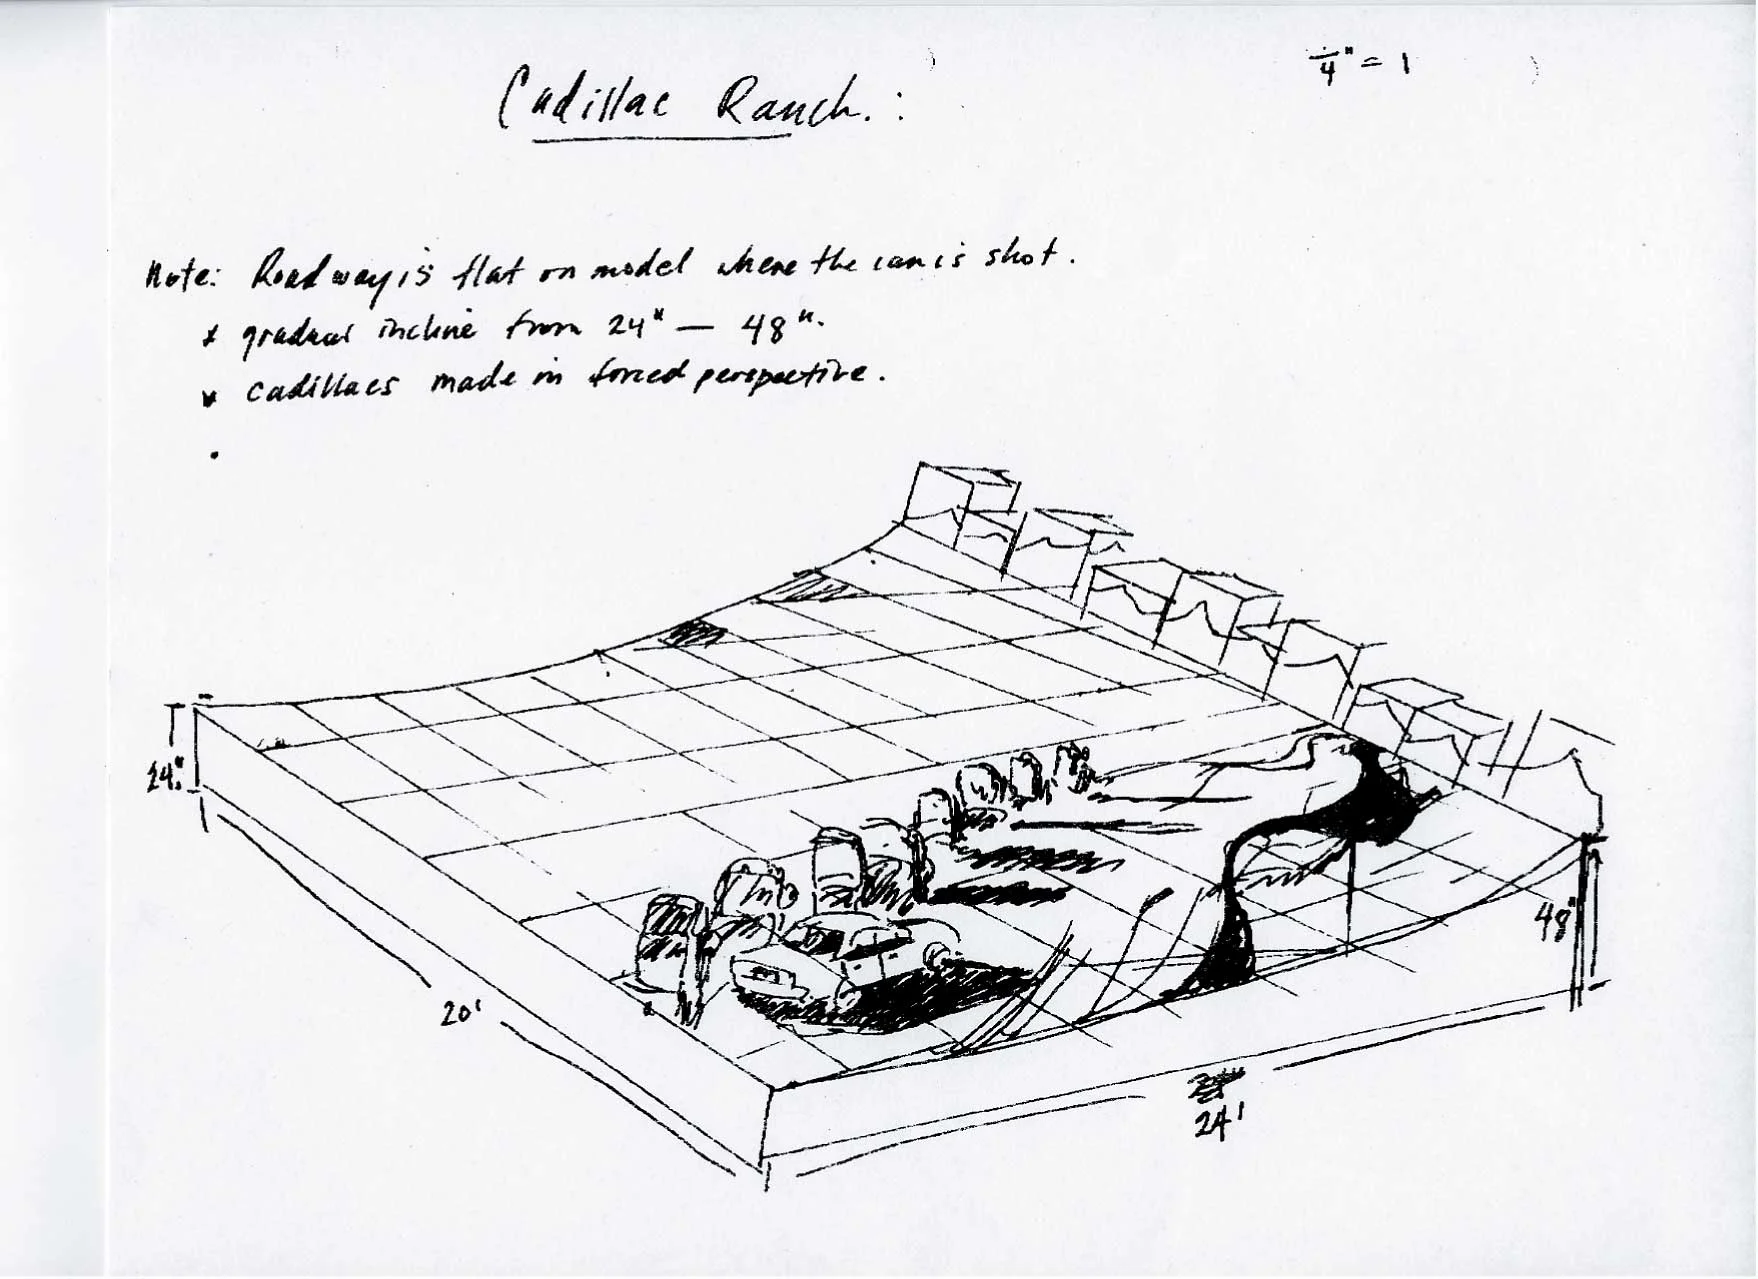 1/4" = 1
Cadillac Ranch. :
Note: Roadway is flat on model where the car is shot.
* gradual incline from 24" — 48".
* cadillacs made in forced perspective.
24"
48"
20'
24'